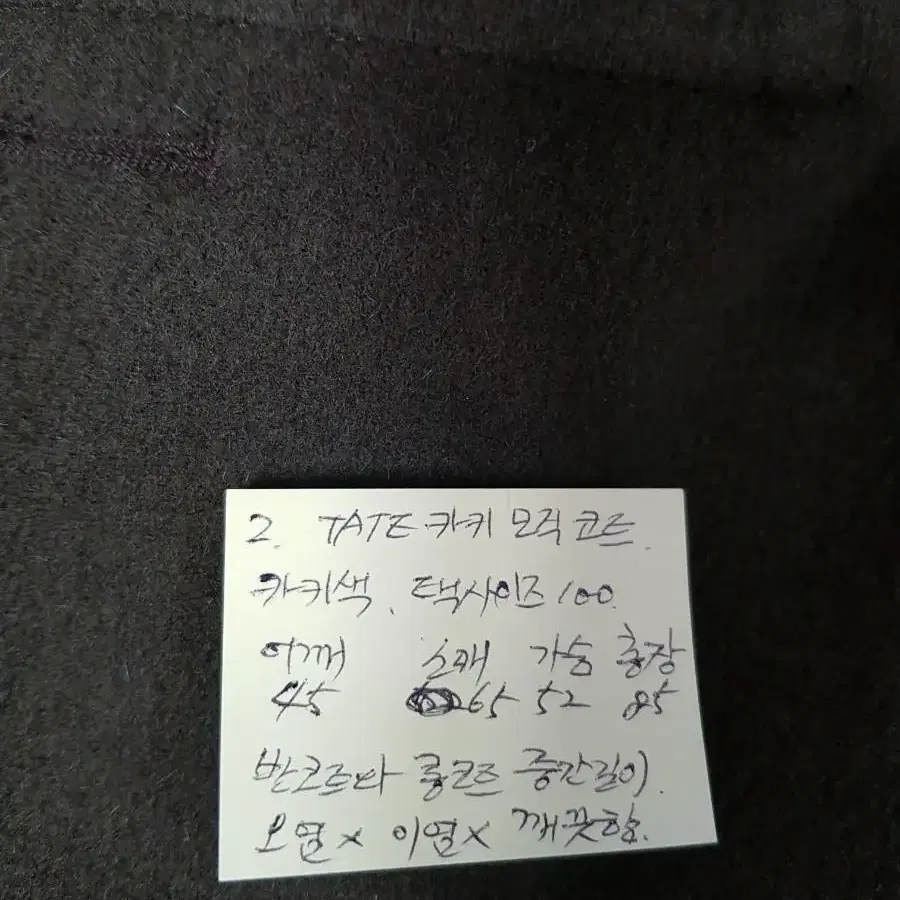 2. TATE 카키 모직 코트.
카키색, 택사이즈 100.
어깨 소매 가슴 총장
45 65 52 85
반코트와 롱코트 중간길이.
오염x 이염x 깨끗함.